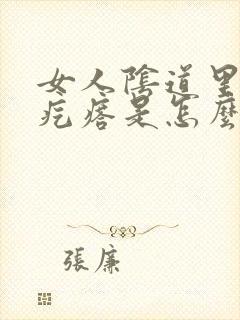 女人陰道里
疙瘩是怎麼
張廉